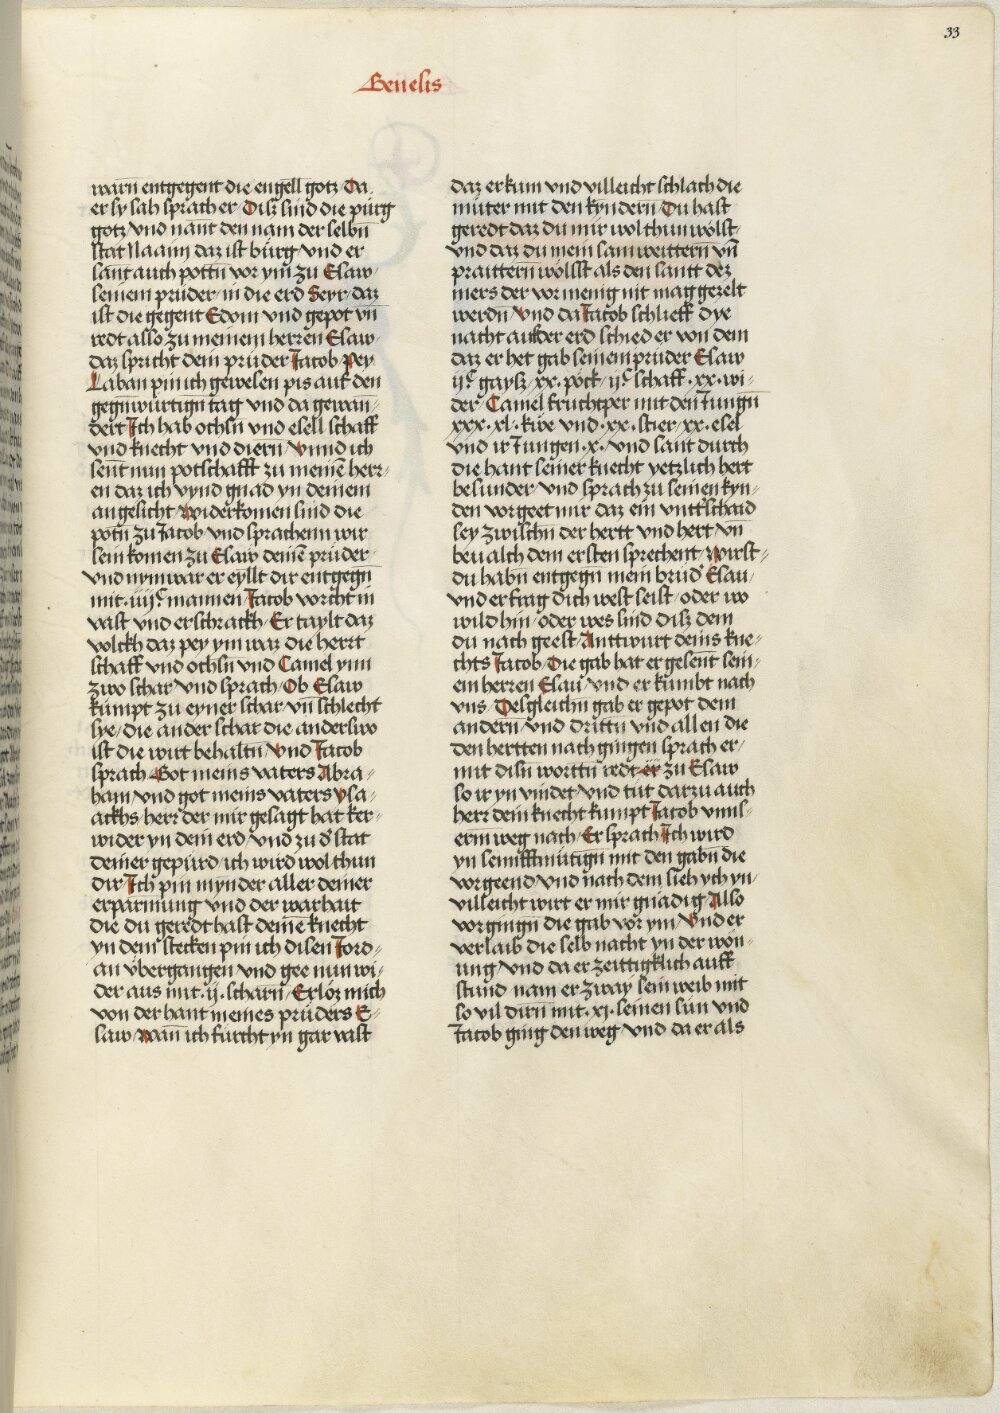 33
Genesis
warn entgegent die engell gotz Da
er sy sah sprach er / Disz sind die pürg
gotz / vnd nant den nam der selbn̄
stat Naaim daz ist bürg / vnd er
sant auch pottn̄ vor ym zu Esaw /
seinem prüder / in die erd Seyr / daz
ist die gegent Edom vnd gepot vn̄
redt also zu meinem herren Esaw /
daz spricht dein prüder Jacob / Pey
Laban pin ich gewesen pis auf den
gegnwürtign̄ tag vnd da gewan⸗
dert Ich hab ochsn̄ vnd esell schaff
vnd knecht vnd diern / vnnd ich
sent nun potschafft zu meinē herr⸗
en daz ich vynd gnad yn deinem
angesicht / widerkomen sind die
potn̄ zu Jacob / vnd sprachenn wir
sein komen zu Esaw deinē prüder /
vnd nym war er eyllt dir entgegn̄
mit · iiijc mannen / Jacob vorcht in
vast vnd erschrackh / Er taylt daz
volckh daz pey ym waz die herrt
schaff vnd ochsn̄ vnd Camel ynn
zwo schar / vnd sprach / Ob Esaw
kumpt zu eyner schar vn̄ schlecht
sye / die ander schar die anderswo
ist die wirt behaltn̄ / vnd Jacob
sprach / Got meins vaters Abra⸗
ham / vnd got meins vaters ysa⸗
ackhs / herr der mir gesagt hat ker⸗
wider yn dein erd / vnd zu d' stat
deiner gepürd / ich wird wol thun
dir / Ich pin mynder aller deiner
erparmung vnd der warhait
die du geredt hast deinē knecht
yn dem stecken pin ich disen Jord⸗
an übergangen vnd gee nun wi⸗
der aus mit · ij · scharn / Erlöz mich
von der hant meines prüders E⸗
saw / wan̄ ich fürcht yn gar vast
daz er kum vnd villeicht schlach die
müter mit den kyndern / Du hast
geredt daz du mir wol thun wölst /
vnd daz du mein sam weittern vn̄
praittern wölsst als den santt dez
mers der vor menig nit mag gezelt
werdn̄ / vnd da Jacob schlieff dye
nacht auf der erd schied er von dem
daz er het gab seinem prüder Esaw
ijc gaysz / xx · pöck / ijc schaff · xx · wi⸗
der Camel fruchtper mit den Jungn̄
xxx · xl · küe vnd · xx · stier / xx · esel
vnd ir Jungen · x · / vnd sant durch
die hant seiner knecht yetzlich hert
besunder / vnd sprach zu seinen kyn⸗
den vorgeet mir daz ein vntt'schaid
sey zwischn̄ der hertt vnd hert / vn̄
beualch dem ersten sprechent / wirst⸗
du habn̄ entgegn̄ mein brüd' Esau /
vnd er frag dich west seist / oder wo
wild hin / oder wes sind disz dem
du nach geest / Anttwurt deins kne⸗
chts Jacob / Die gab hat er gesent sein⸗
em herren Esau / vnd er kumbt nach
vns / Desgleichn̄ gab er gepot dem
andern / vnd drittn̄ vnd allen die
den hertten nach gingen sprach er /
mit disn̄ worttn̄ redt er zu Esaw
so ir yn vindet / vnd tüt darzu auch
herr dein knecht kumpt Jacob vnns⸗
erm weg nach / Er sprach Ich wird
yn semfftmütign̄ mit den gabn̄ die
vorgeend / vnd nach dem sieh ych yn /
villeicht wirt er mir gnädig Also
vorgingn̄ die gab vor ym / vnd er
verlaib die selb nacht yn der won⸗
ung / vnd da er zeittigklich auff
stund nam er zway sein weib mit
so vil dirn̄ mit · xj · seinen sün vnd
Jacob ging den weg / vnd da er als